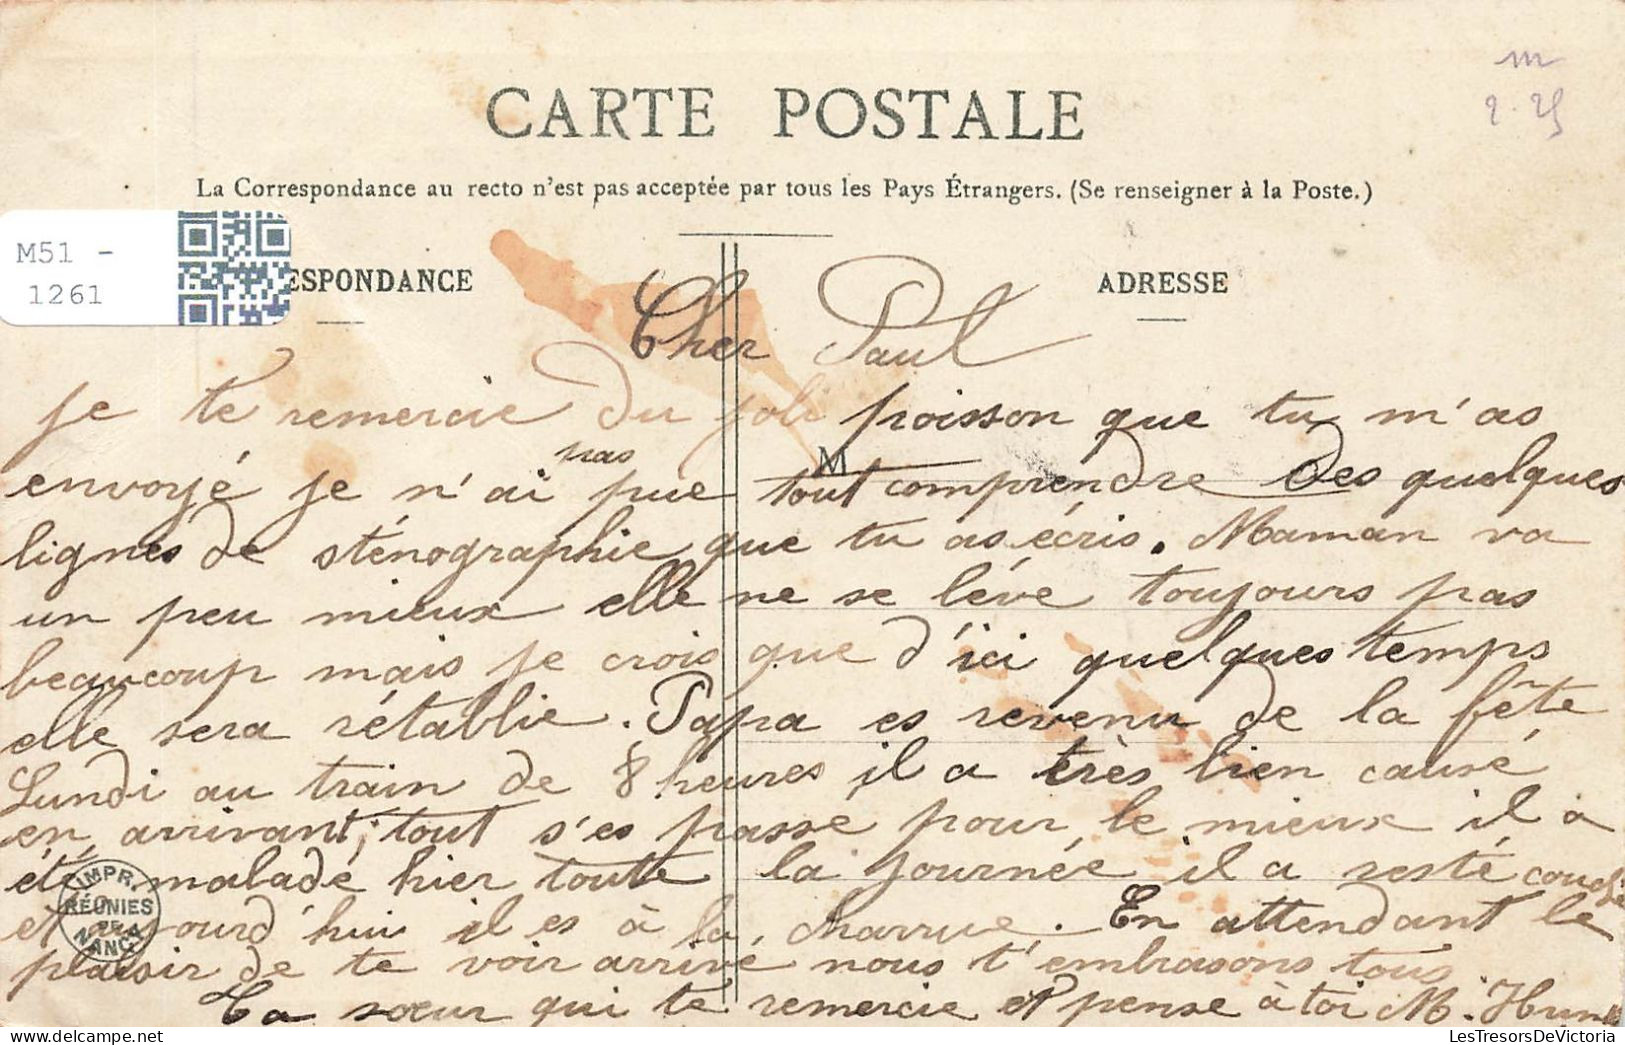 m
2.25
CARTE POSTALE
La Correspondance au recto n'est pas acceptée par tous les Pays Étrangers. (Se renseigner à la Poste.)
M51 -
1261
ESPONDANCE
ADRESSE
Cher Paul
je te remercie du joli poisson que tu m'as
pas
M
envoyé je n'ai pue tout comprendre des quelques
lignes de sténographie que tu as écris. Maman va
un peu mieux elle ne se léve toujours pas
beaucoup mais je crois que d'ici quelques temps
elle sera rétablie. Papa es revenu de la fête
Lundi au train de 8 heures il a très bien causé
en arrivant, tout s'es passé pour le mieux il a
été malade hier toute la journée il a resté couché
et aujourd'hui il es à la charrue. En attendant le
IMPR. RÉUNIES DE NANCY
plaisir de te voir arrivé nous t'embrasons tous
Ta sœur qui te remercie et pense à toi M.
LesTresorsDeVictoria